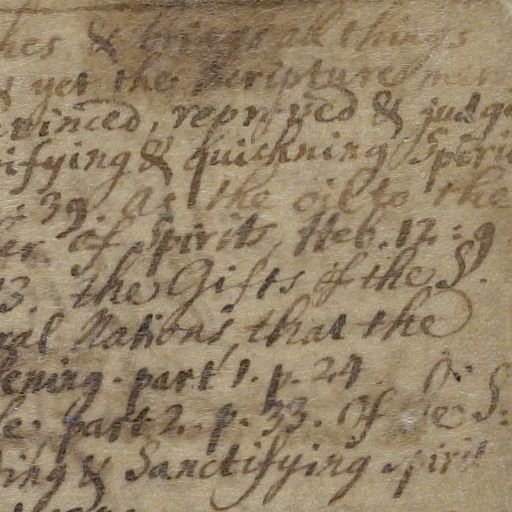 hes & brings all things
& yet the Scriptures mer
vinced, reproved & judge
ifying & quickning Spirit
: 39. as the oil to the
er of Spirits, Heb. 12: 9
13. the Gifts of the S.
ral Nations that the
ening. part 1. p. 24. S:
le, part 2. p. 33. Of the S:
ing & Sanctifying Spirit